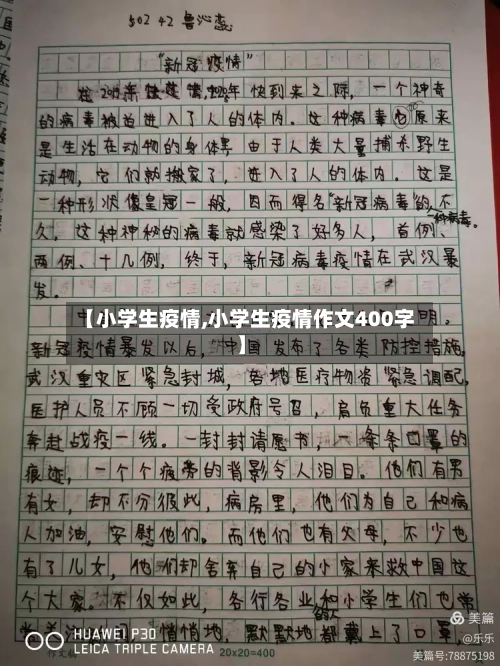 502 42 鲁沁蕊
“新冠疫情”
在2019年 2020年 快到来之际，一个神奇
的病毒被迫进入了人的体内。这种病毒 原来
是生活在动物的身体里，由于人类大量捕杀野生
动物，它们就搬家了，进入了人的体内。这是
一种形状像皇冠一般，因而得名“新冠病毒”的
一种病毒。
不
久，这种神秘的病毒就感染了好多人，首例、
两例、十几例，终于，新冠病毒疫情在武汉暴
发。
中 明，
【小学生疫情,小学生疫情作文400字
】
新冠疫情暴发以后，中国发布了各类防控措施，
武汉重灾区紧急封城，各地医疗物资紧急调配，
医护人员不顾一切受政府号召，肩负重大任务
奔赴战疫一线。一封封请愿书，一条条口罩的
痕迹，一个个疲劳的背影令人泪目。他们有男
有女，却不分彼此，病房里，他们为自己和病
人加油，安慰他们。而他们也有父母，不少也
有了儿女，他们却舍弃自己的小家来救中国这
个大家。不仅如此，各行各业和小学生们也常
的人
悄悄地，默默地都戴上了口罩，
HUAWEI P30
LEICA TRIPLE CAMERA
作文纸
20×20=400
美篇
@乐乐
美篇号:78875198